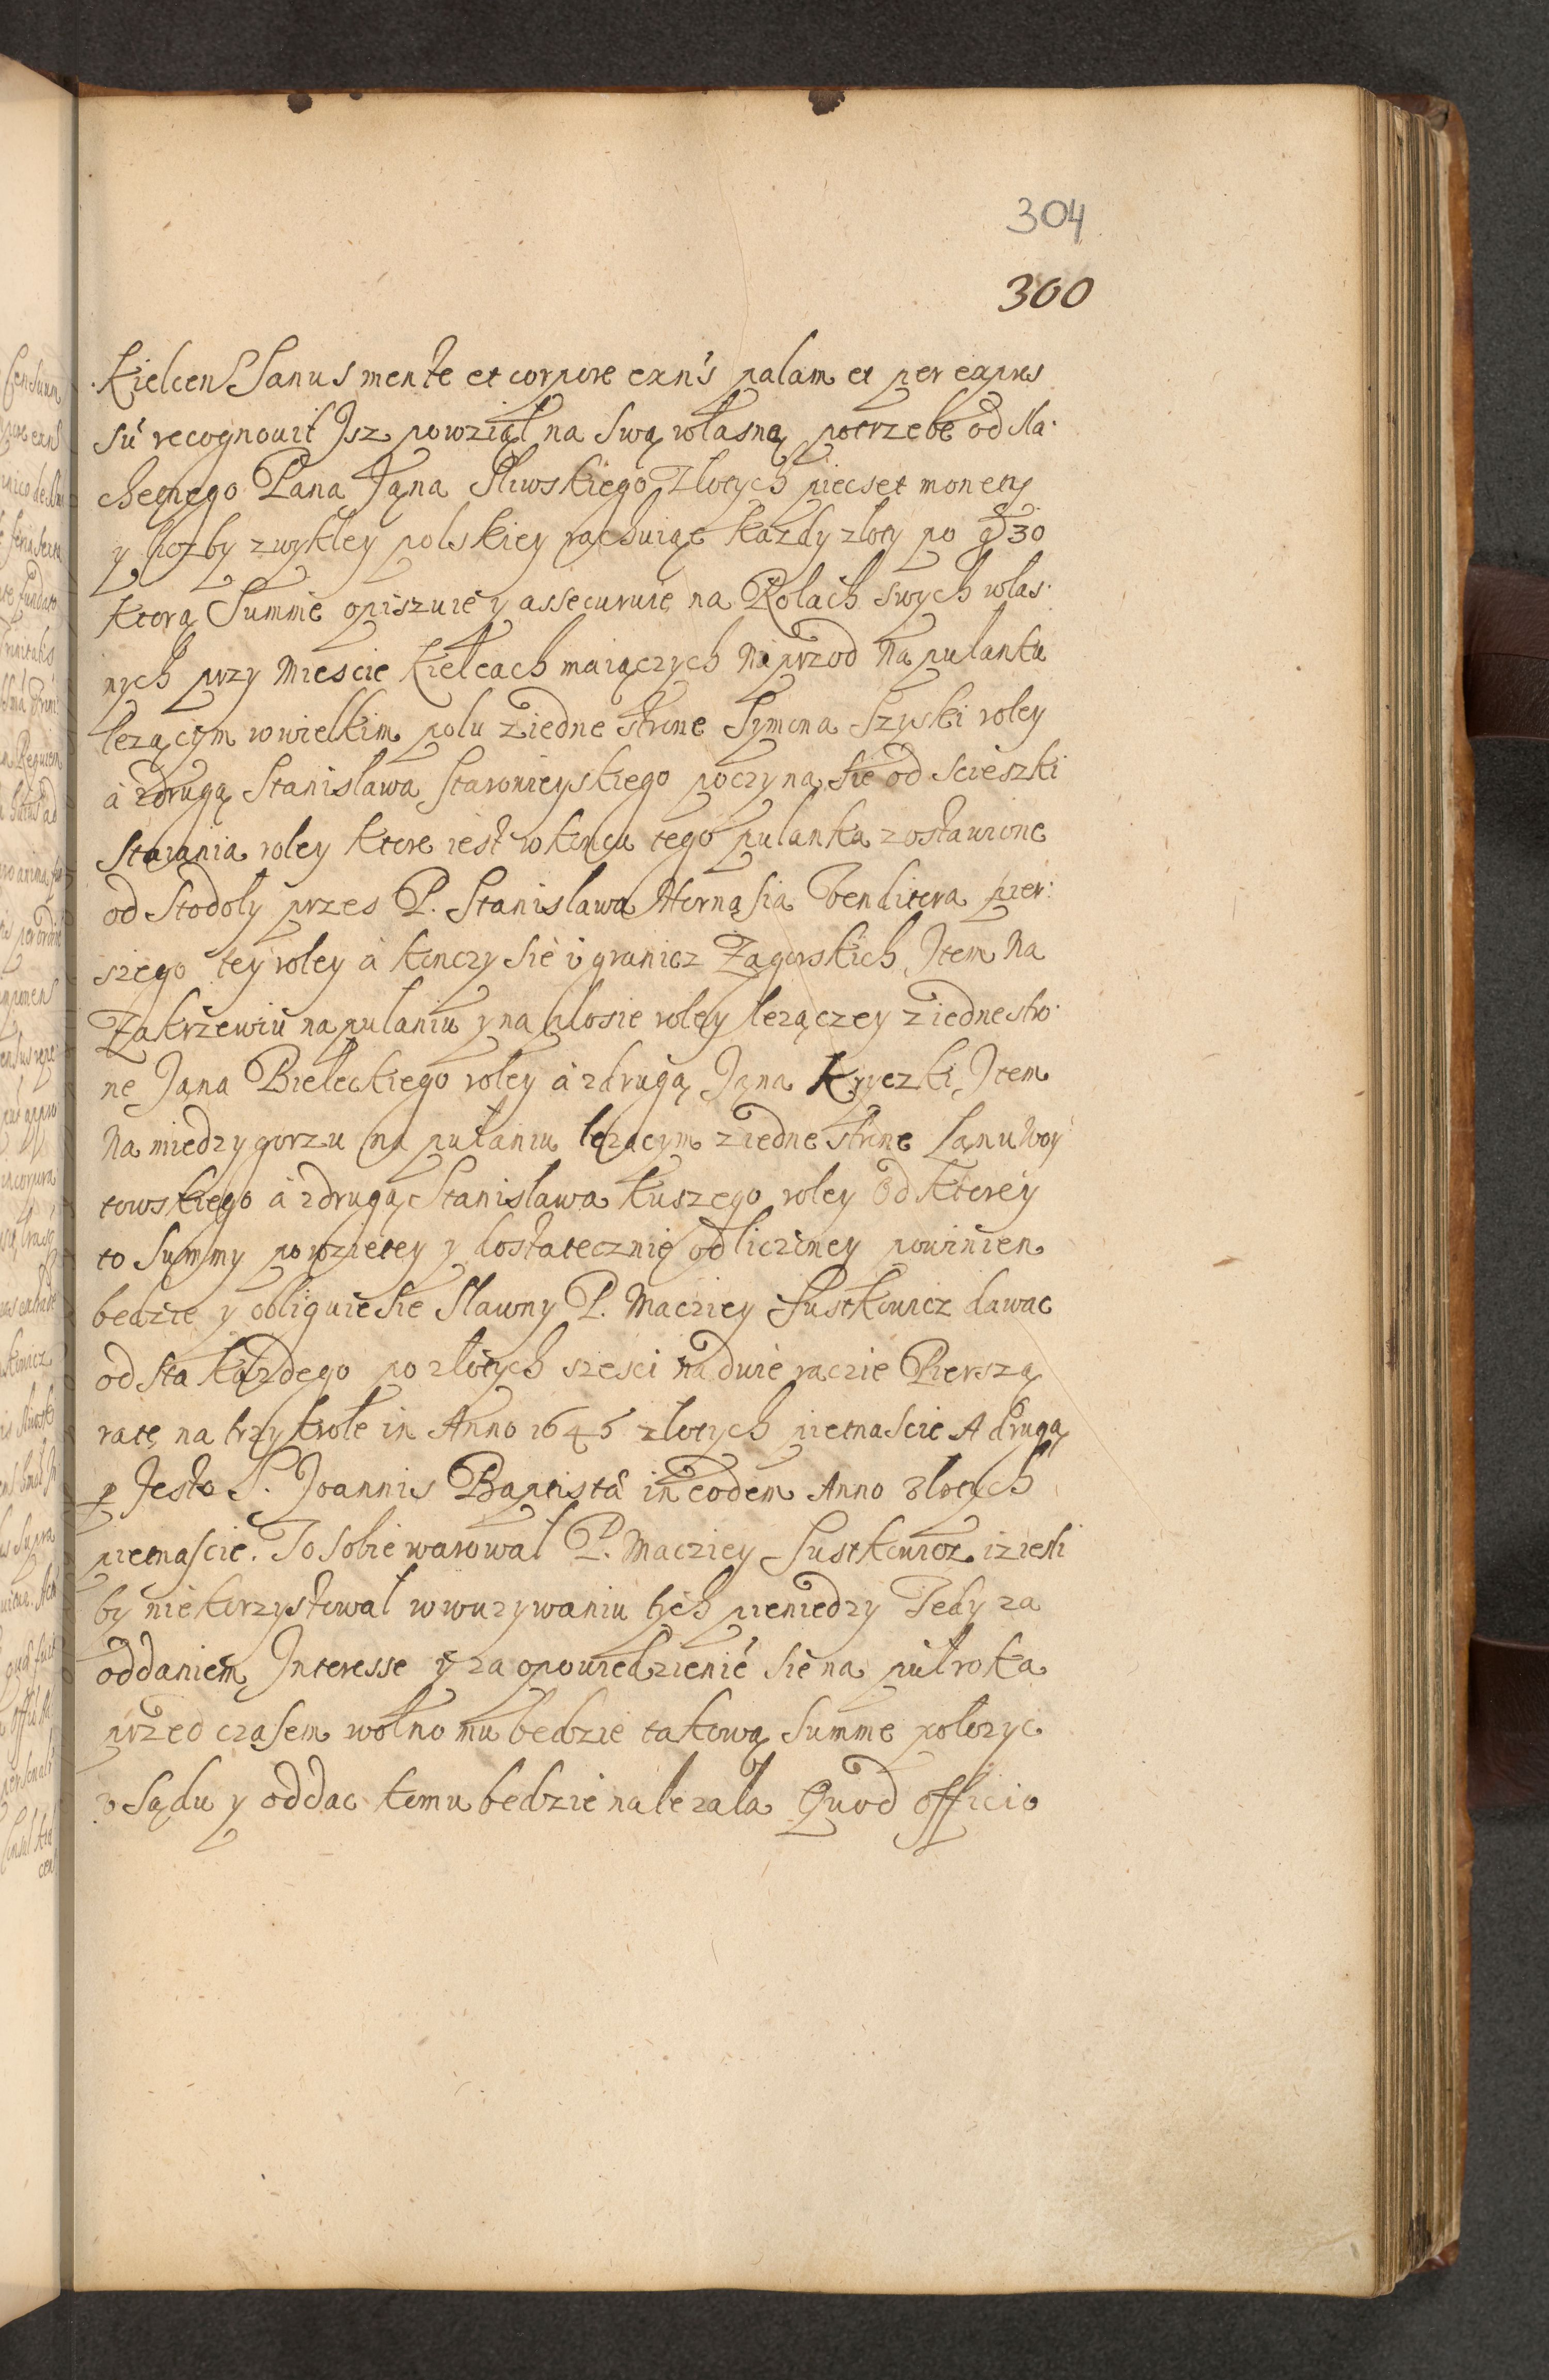 304
300
Kielcen Sanus mente et corpore exn's palam et per expres
sú recognouit Jsz powziął na swą własną potrzebe od sla
chetnego Pana Jana Sliwskiego Złotych piecset monety
y liczby zwykley polskiey rachuiąc każdy zloty po g 30
ktorą Summe opiszuie y assecuruie na Rolach swych wlas
nych przy Miescie Kielcach maiączych Naprzod Na pulanku
lezącym w wielkim polu z iedne strone Symona Szyski roley
a z drugą Stanislawa Staromieyskiego poczyna sie od scieszki
Staiania roley ktore iest w koncu tego pulanka zostawione
od Stodoly przes P. Stanislawa Venditora pier
szego tey roley a konczy sie v granicz Zagorskich, Jtem Na
Zakrzewiu na pulaniu y na klosie roley lezączey z iedne stro
ne Jana Bieleckiego roley a z drugą Jana Jtem
Na miedzygorzu na pulaniu lezącym z iedne strone Lanu Woy
towskiego a z drugą Stanislawa Kuszego roley Od ktorey
to Summy powzietey y dostatecznie odliczoney powinien
bedzie y obliguie sie Slawny P. Macziey Sustkowicz dawac
od sta każdego po zlotych szesci na dwie raczie Pierszą
rate na trzy krole in Anno 1645 zlotych pietnascie A drugą
p festo S. Joannis Baptistæ in eodem Anno zlotych
pietnascie. To sobie warowal P. Macziey Sustkowicz iz iesli
by nie korzystowal w wuzywaniu tych pieniedzy Tedy za
oddaniem Jnteresse y za opowiedzienie sie na pulroka
przed czasem wolno mu bedzie takową Summe polozyc
v Sądu y oddac komu bedzie nalezala Quod officio